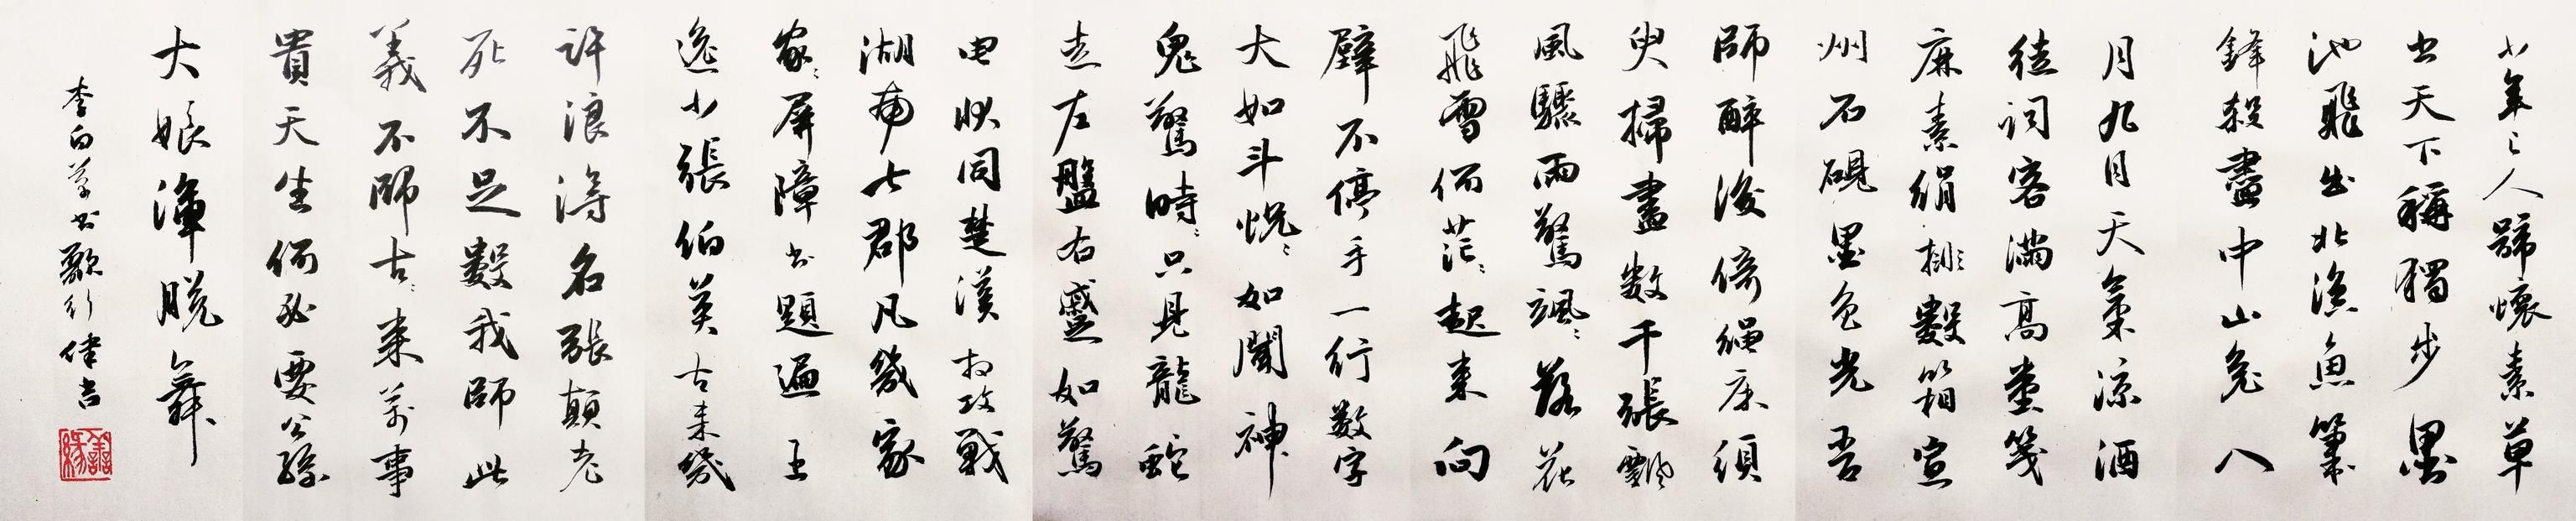 少年上人號懷素草
書天下稱獨步墨
池飛出北溟魚筆
鋒殺盡中山兔八
月九月天氣涼酒
徒詞客滿高堂箋
麻素絹排數箱宣
州石硯墨色光吾
師醉後倚繩床須
臾掃盡數千張飄
風驟雨驚颯々落花
飛雪何茫々起來向
壁不停手一行數字
大如斗怳々如聞神
鬼驚時々只見龍蛇
走左盤右蹙如驚
電狀同楚漢相攻戰
湖南七郡凡幾家
家々屏障書題遍王
逸少張伯英古來幾
許浪得名張顛老
死不足數我師此
義不師古々來萬事
貴天生何必要公孫
大娘渾脫舞
李白草書歌行